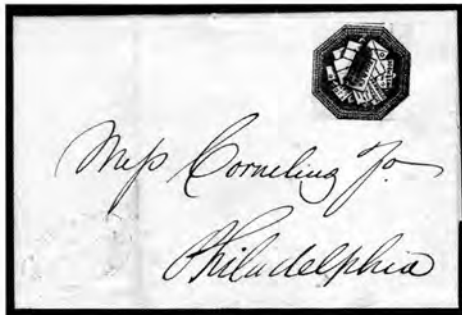 Mess Cornelius
Philadelphia